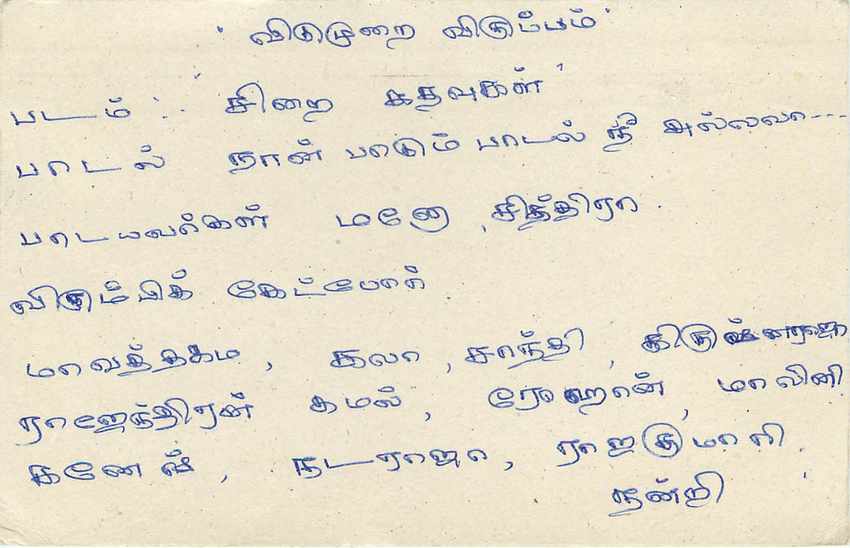 ' விடுமுறை விருப்பம் '
படம் : ' சிறை கதவுகள் '
பாடல் நான் பாடும் பாடல் நீ அல்லவா ---
பாடயவர்கள் மனோ , சித்திரா .
விரும்பிக் கேட்போர்
மாவத்தகம , கலா , சாந்தி , கிருஷ்ணராஜா
ராஜேந்திரன் கமல் , ரோஹான் , மாலினி
கனேஷ் , நடராஜா , ராஜகுமாரி .
நன்றி